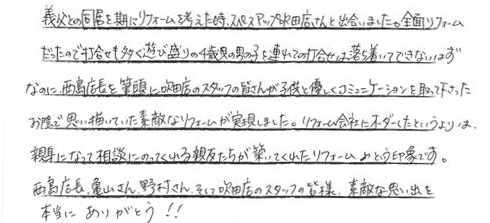 義父との同居を期にリフォームを考えた時、スペースアップ吹田店さんと出合いました。全面リフォーム
だったので打合せも多く遊び盛りの4歳児の男の子を連れての打合せは落ち着いてできないはず
なのに、西島店長を筆頭に吹田店のスタッフの皆さんが子供と優しくコミュニケーションを取って下さった
お陰で思い描いていた素敵なリフォームが実現しました。リフォーム会社にオーダーしたというよりは、
親身になって相談にのってくれる親方たちが築いてくれたリフォームという印象です。
西島店長、亀山さん、野村さん、そして吹田店のスタッフの皆様、素敵な思い出を
本当に ありがとう!!